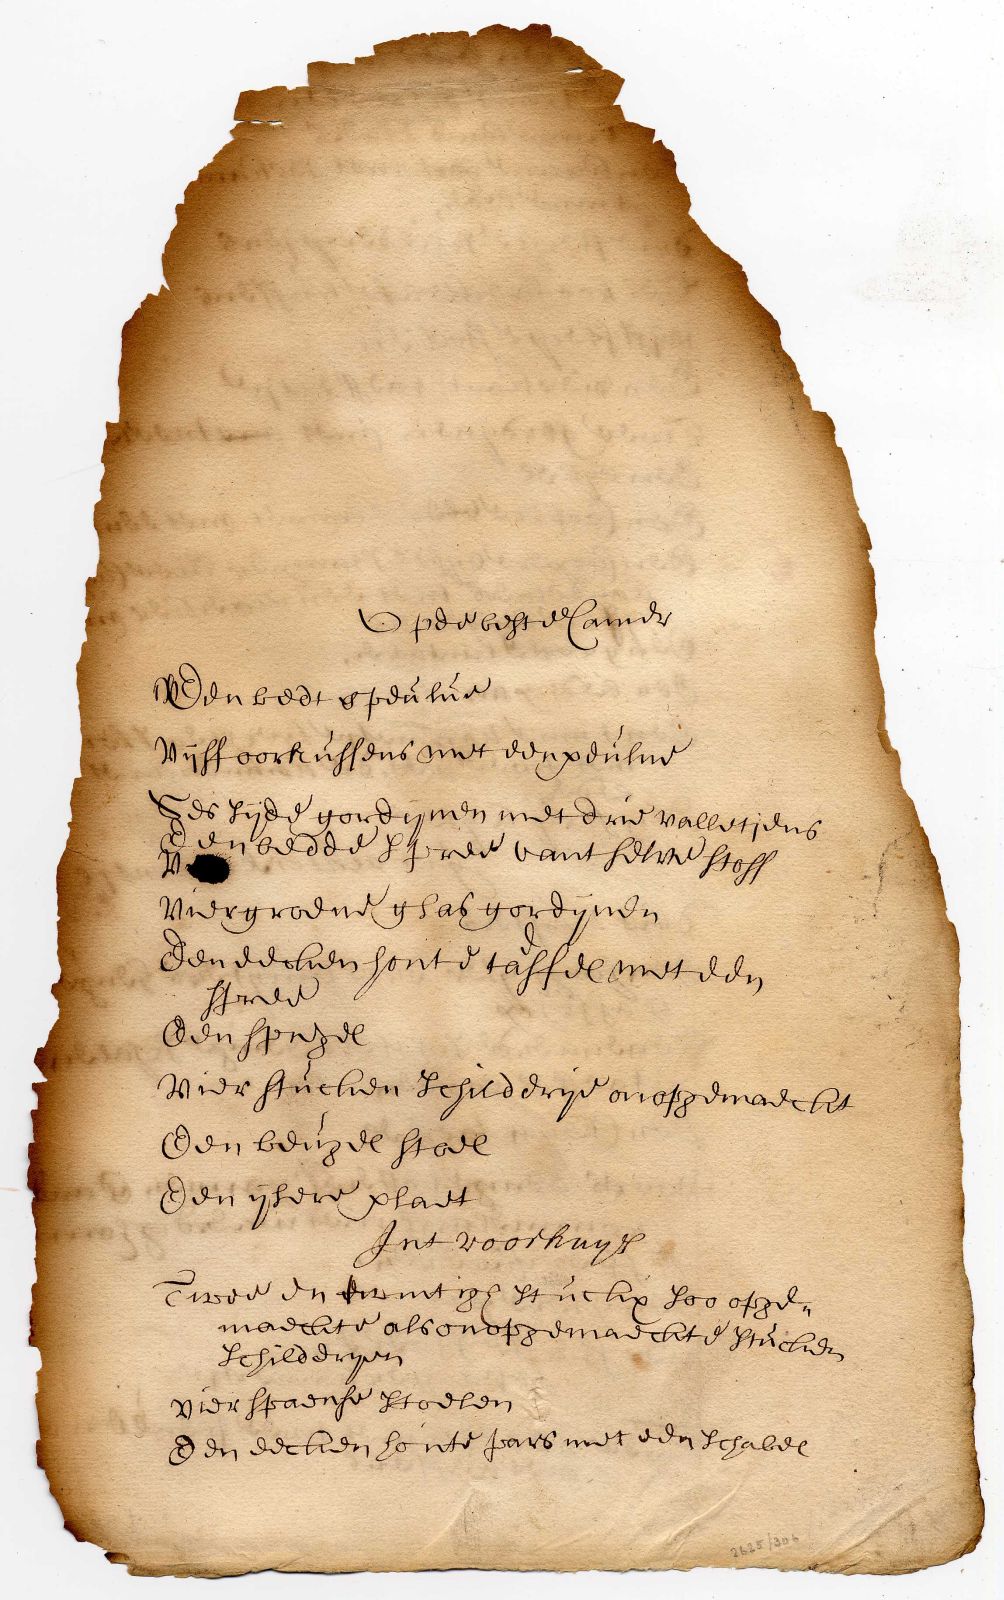 Op de beste Camer
Een bedt & peuluwe
Vijff oorkussens met een peulue
Ses sijde gordijnen met drie valletjens
Een bedde spree vant selve stoff
Vier groene glas gordijnen
Een eecken houte taeffel met een
spree
Een spiegel
Vier stucken schilderije onopgemaeckt
Een beugel stoel
Een ijsere plaet
Int voorhuys
Twee en twintigh stuckx soo opge-
maeckte als onopgemaeckte stucken
schilderyen
vier spaense stoelen
Een eecken houte pars met een schabel
2625/306